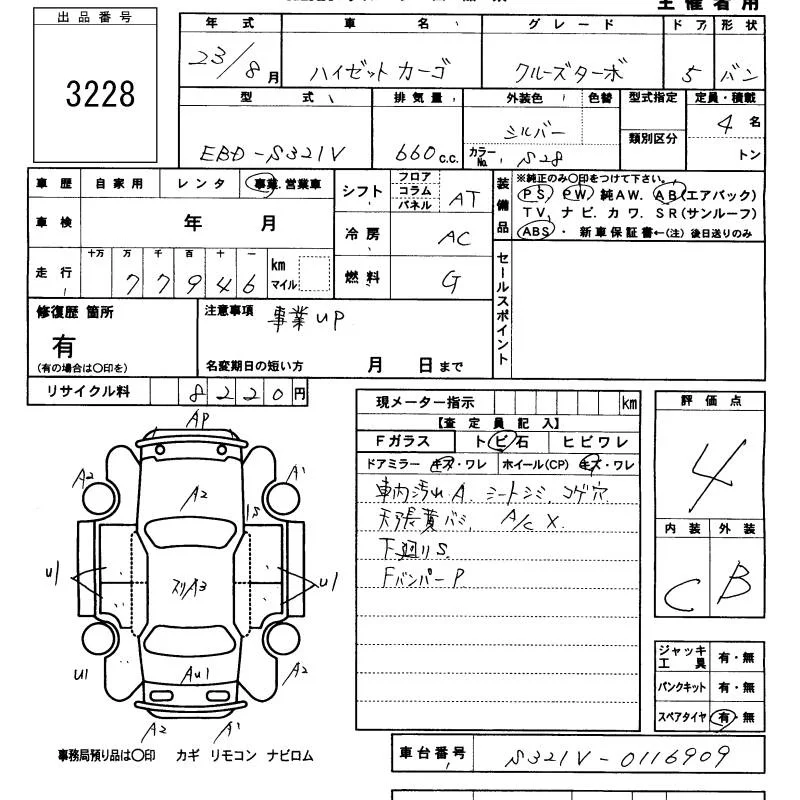 主催者用
出品番号
3228
年式 車名 グレード ドア 形状
23/8月 ハイゼットカーゴ クルーズターボ 5 バン
型式 排気量 外装色 色替 型式指定 定員・積載
EBD-S321V 660c.c. シルバー 類別区分 4名
カラーNo. S28 トン
車歴 自家用 レンタ 事業.営業車
車検 年 月
走行 十万 万 千 百 十 一 km
77946 マイル
シフト フロア コラム パネル AT
冷房 AC
燃料 G
装備品 ※純正のみ○印をつけて下さい。
PS, PW, 純AW. AB(エアバック)
TV, ナビ. カワ. SR(サンルーフ)
ABS・ 新車保証書←(注) 後日送りのみ
セールスポイント
修復歴 箇所
有
(有の場合は○印を)
注意事項 事業up
名変期日の短い方 月 日まで
リサイクル料 8220円
現メーター指示 km
【査定員記入】
Fガラス トビ石 ヒビワレ
ドアミラー キズ・ワレ ホイール(CP) キズ・ワレ
車内汚れA. シートシミ, コゲ穴
天張黄バミ, A/C X.
下廻りS.
FバンパーP.
評価点
4
内装 外装
C B
ジャッキ工具 有・無
パンクキット 有・無
スペアタイヤ 有・無
AP
A2 A1
A2
1S
U1 A3 U1
U1 AU1 A2
A2 A1
事務局預り品は○印 カギ リモコン ナビロム
車台番号 S321V-0116909